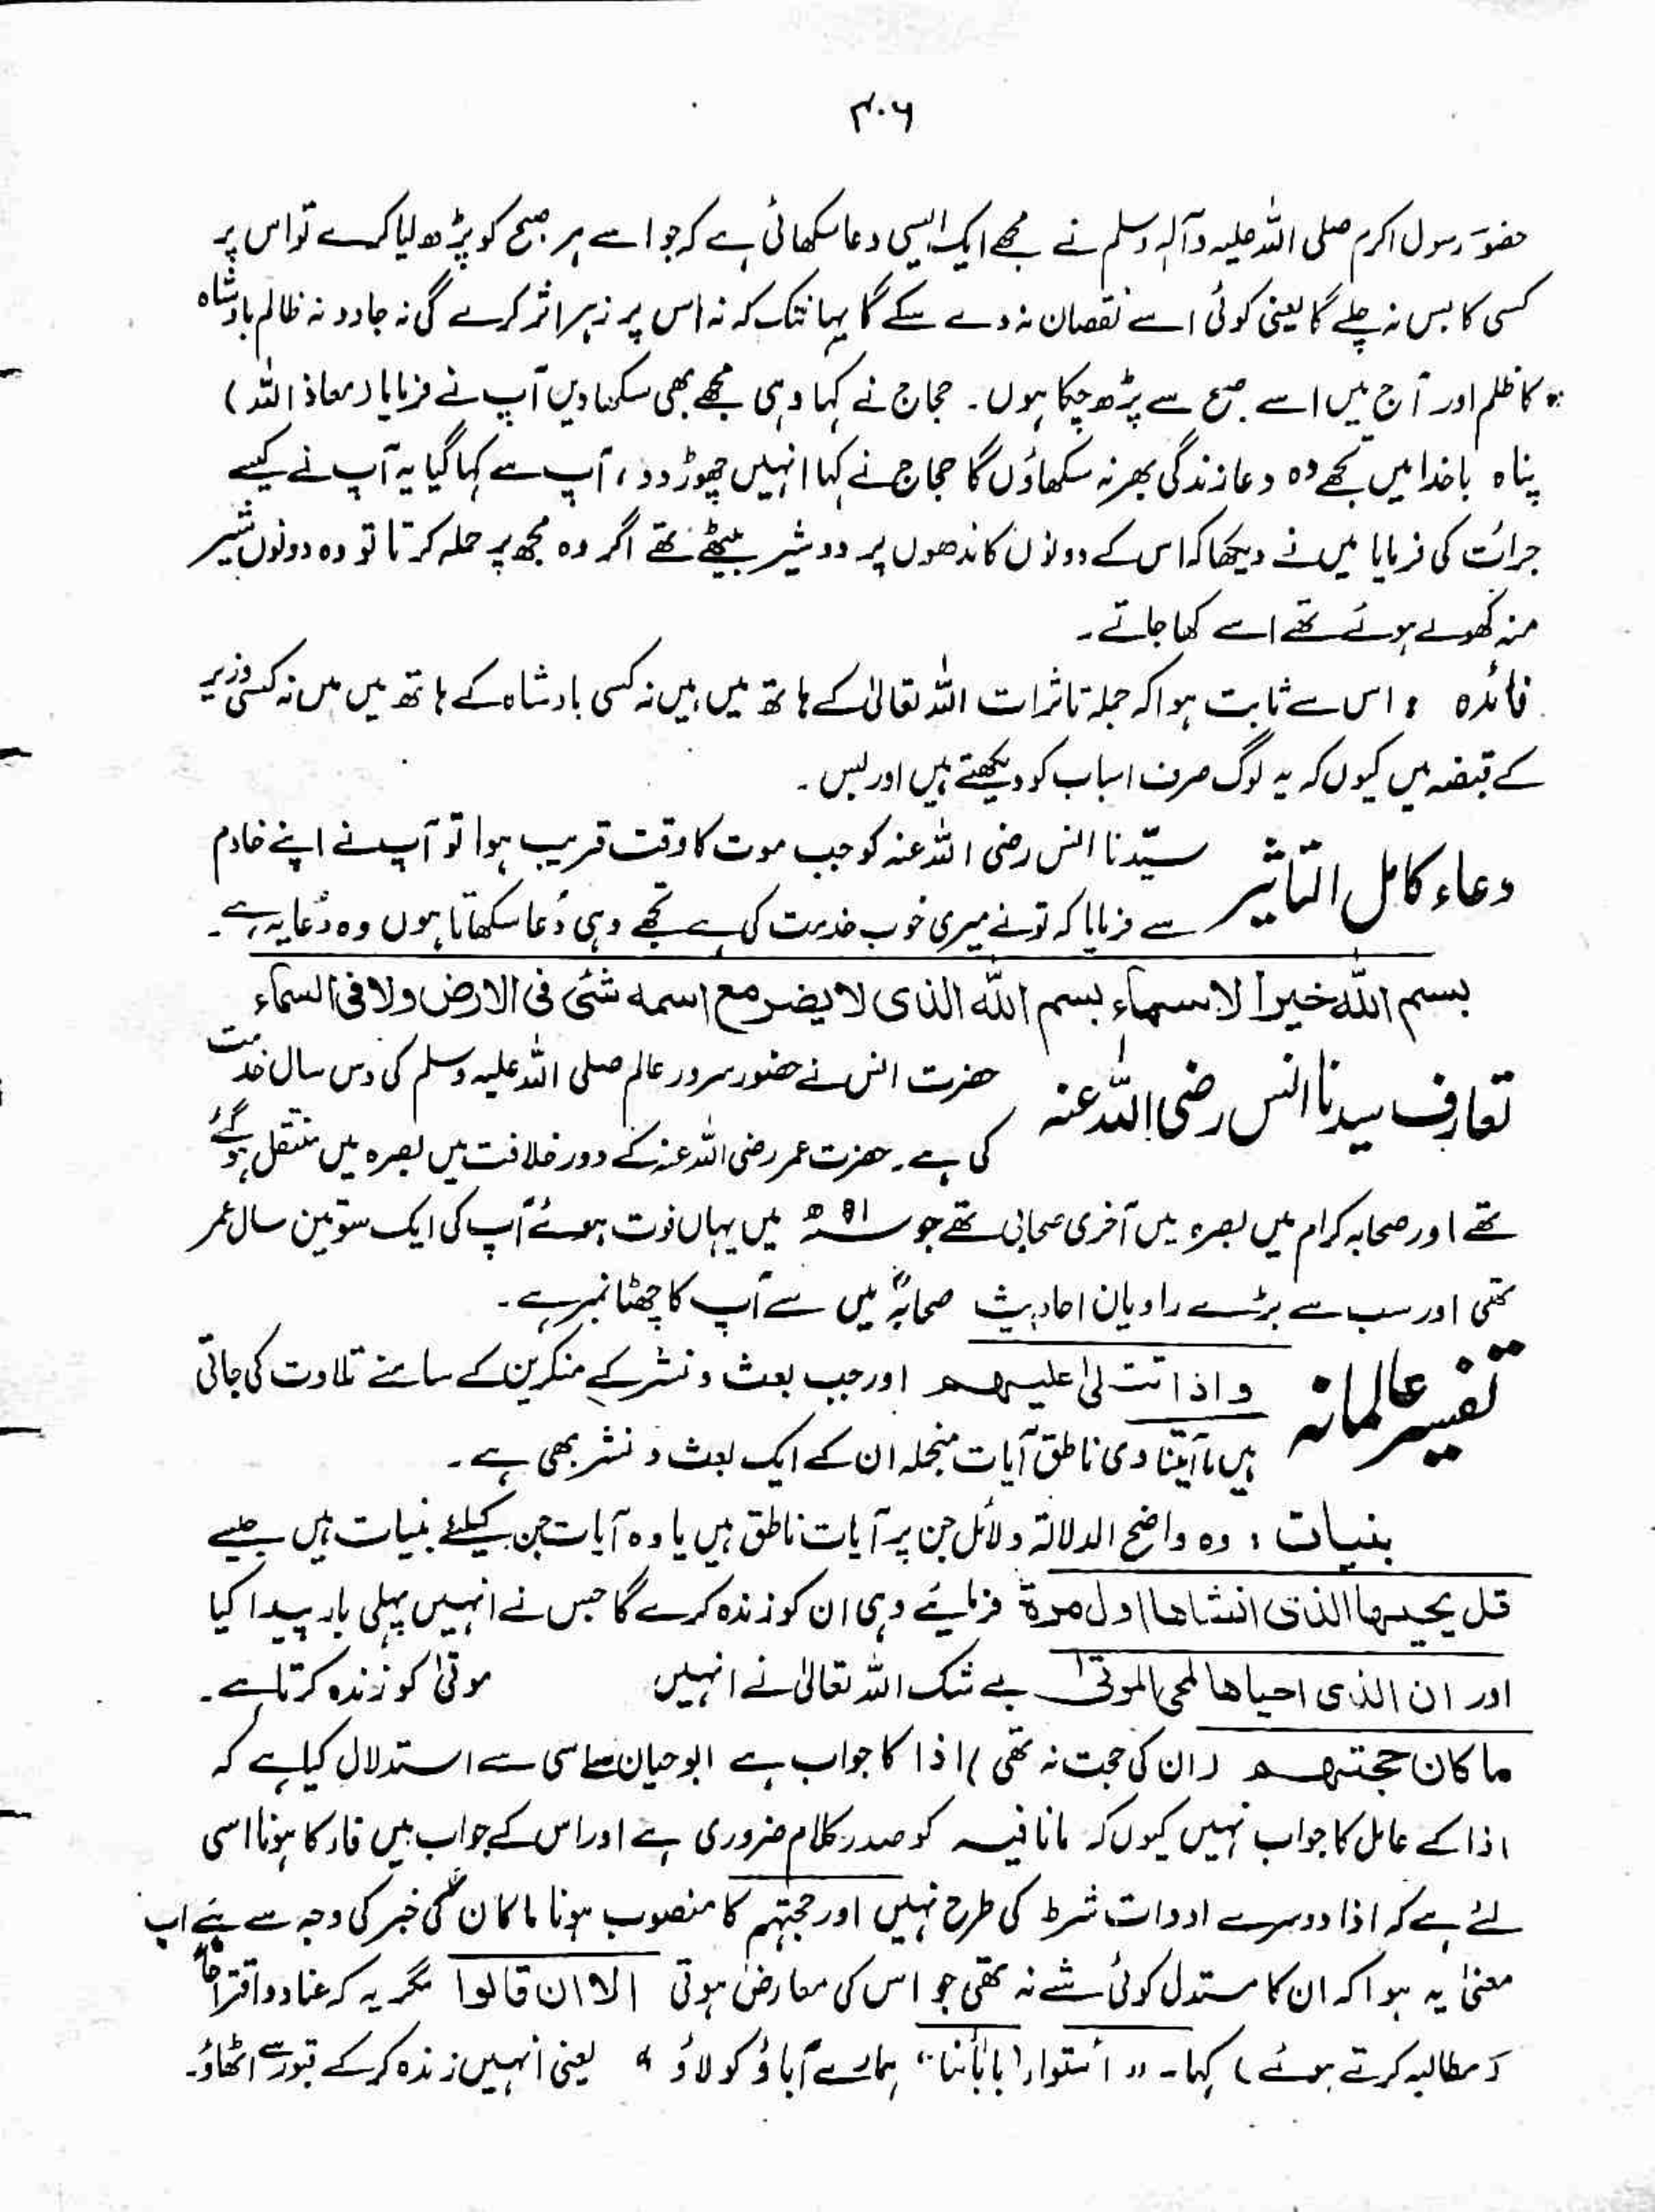 ۴۰۶
حضور رسول اکرم صلی اللہ علیہ وآلہ وسلم نے مجھے ایک ایسی دعا سکھائی ہے کہ جو اسے ہر صبح کو پڑھ لیا کرے تو اس پر
کسی کا بس نہ چلے گا یعنی کوئی اسے نقصان نہ دے سکے گا یہانتک کہ نہ اس پر زہر اثر کرے گی نہ جادو نہ ظالم بادشاہ
کا ظلم اور آج میں اسے صبح سے پڑھ چکا ہوں۔ حجاج نے کہا وہی مجھے بھی سکھا دیں آپ نے فرمایا (معاذ اللہ)
پناہ باخدا میں تجھے وہ دعا زندگی بھر نہ سکھاؤں گا حجاج نے کہا انہیں چھوڑ دو، آپ سے کہا گیا یہ آپ نے کیسے
جرائت کی فرمایا میں نے دیکھا کہ اس کے دونوں کاندھوں پر دو شیر بیٹھے تھے اگر وہ مجھ پر حملہ کرتا تو وہ دونوں شیر
منہ کھولے ہوئے تھے اسے کھا جاتے۔
فائدہ : اس سے ثابت ہوا کہ جملہ تاثرات اللہ تعالیٰ کے ہاتھ میں ہیں نہ کسی بادشاہ کے ہاتھ میں ہیں نہ کسی وزیر
کے قبضہ میں کیوں کہ یہ لوگ صرف اسباب کو دیکھتے ہیں اور بس۔
دعاء کامل التاثیر سیّدنا انس رضی اللہ عنہ کو جب موت کا وقت قریب ہوا تو آپ نے اپنے خادم
سے فرمایا کہ تو نے میری خوب خدمت کی ہے تجھے وہی دُعا سکھاتا ہوں وہ دُعا یہ ہے۔
بسم اللہ خیر الاسماء بسم اللہ الذی لا یضر مع اسمہ شئی فی الارض ولا فی السماء
تعارف سیدنا انس رضی اللہ عنہ حضرت انس نے حضور سرور عالم صلی اللہ علیہ وسلم کی دس سال خدمت
کی ہے۔ حضرت عمر رضی اللہ عنہ کے دور خلافت میں بصرہ میں منتقل ہو گئے
تھے اور صحابہ کرام میں بصرہ میں آخری صحابی تھے جو ۹۱ھ میں یہاں فوت ہوئے آپ کی ایک سو تین سال عمر
تھی اور سب سے بڑے راویان احادیث صحابہؓ میں سے آپ کا چھٹا نمبر ہے۔
تفسیر عالمانہ واذا تتلیٰ علیہم اور جب بعث و نشر کے منکرین کے سامنے تلاوت کی جاتی
ہیں ہاآیٰتنا وہی ناطق آیات منجملہ ان کے ایک بعث و نشر بھی ہے۔
بنیات : وہ واضح الدلالۃ دلائل جن پر آیات ناطق ہیں یا وہ آیات جن کیلئے بنیات ہیں جیسے
قل یحییہا الذی انشاھا اول مرۃ فرمایئے وہی ان کو زندہ کرے گا جس نے انہیں پہلی بار پیدا کیا
اور ان الذی احیاھا لمحی الموتیٰ بے شک اللہ تعالیٰ نے انہیں موتیٰ کو زندہ کرتا ہے۔
ما کان حجتہم (ان کی حجت نہ تھی) اذا کا جواب ہے ابوحیان اسی سے استدلال کیا ہے کہ
اذا کے عامل کا جواب نہیں کیوں کہ ما نافیہ کو صدر کلام ضروری ہے اور اس کے جواب میں فاء کا ہونا اسی
لئے ہے کہ اذا دوسرے ادوات شرط کی طرح نہیں اور حجتہم کا منصوب ہونا ما کان کی خبر کی وجہ سے ہے اب
معنیٰ یہ ہوا کہ ان کا مستدل کوئی شے نہ تھی جو اس کی معارض ہوتی الا ان قالوا مگر یہ کہ عناد و اقتراحاً
(مطالبہ کرتے ہوئے) کہا۔ "أئتوا بابائنا" ہمارے آباؤ کو لاؤ" یعنی انہیں زندہ کر کے قبور سے اٹھاؤ۔